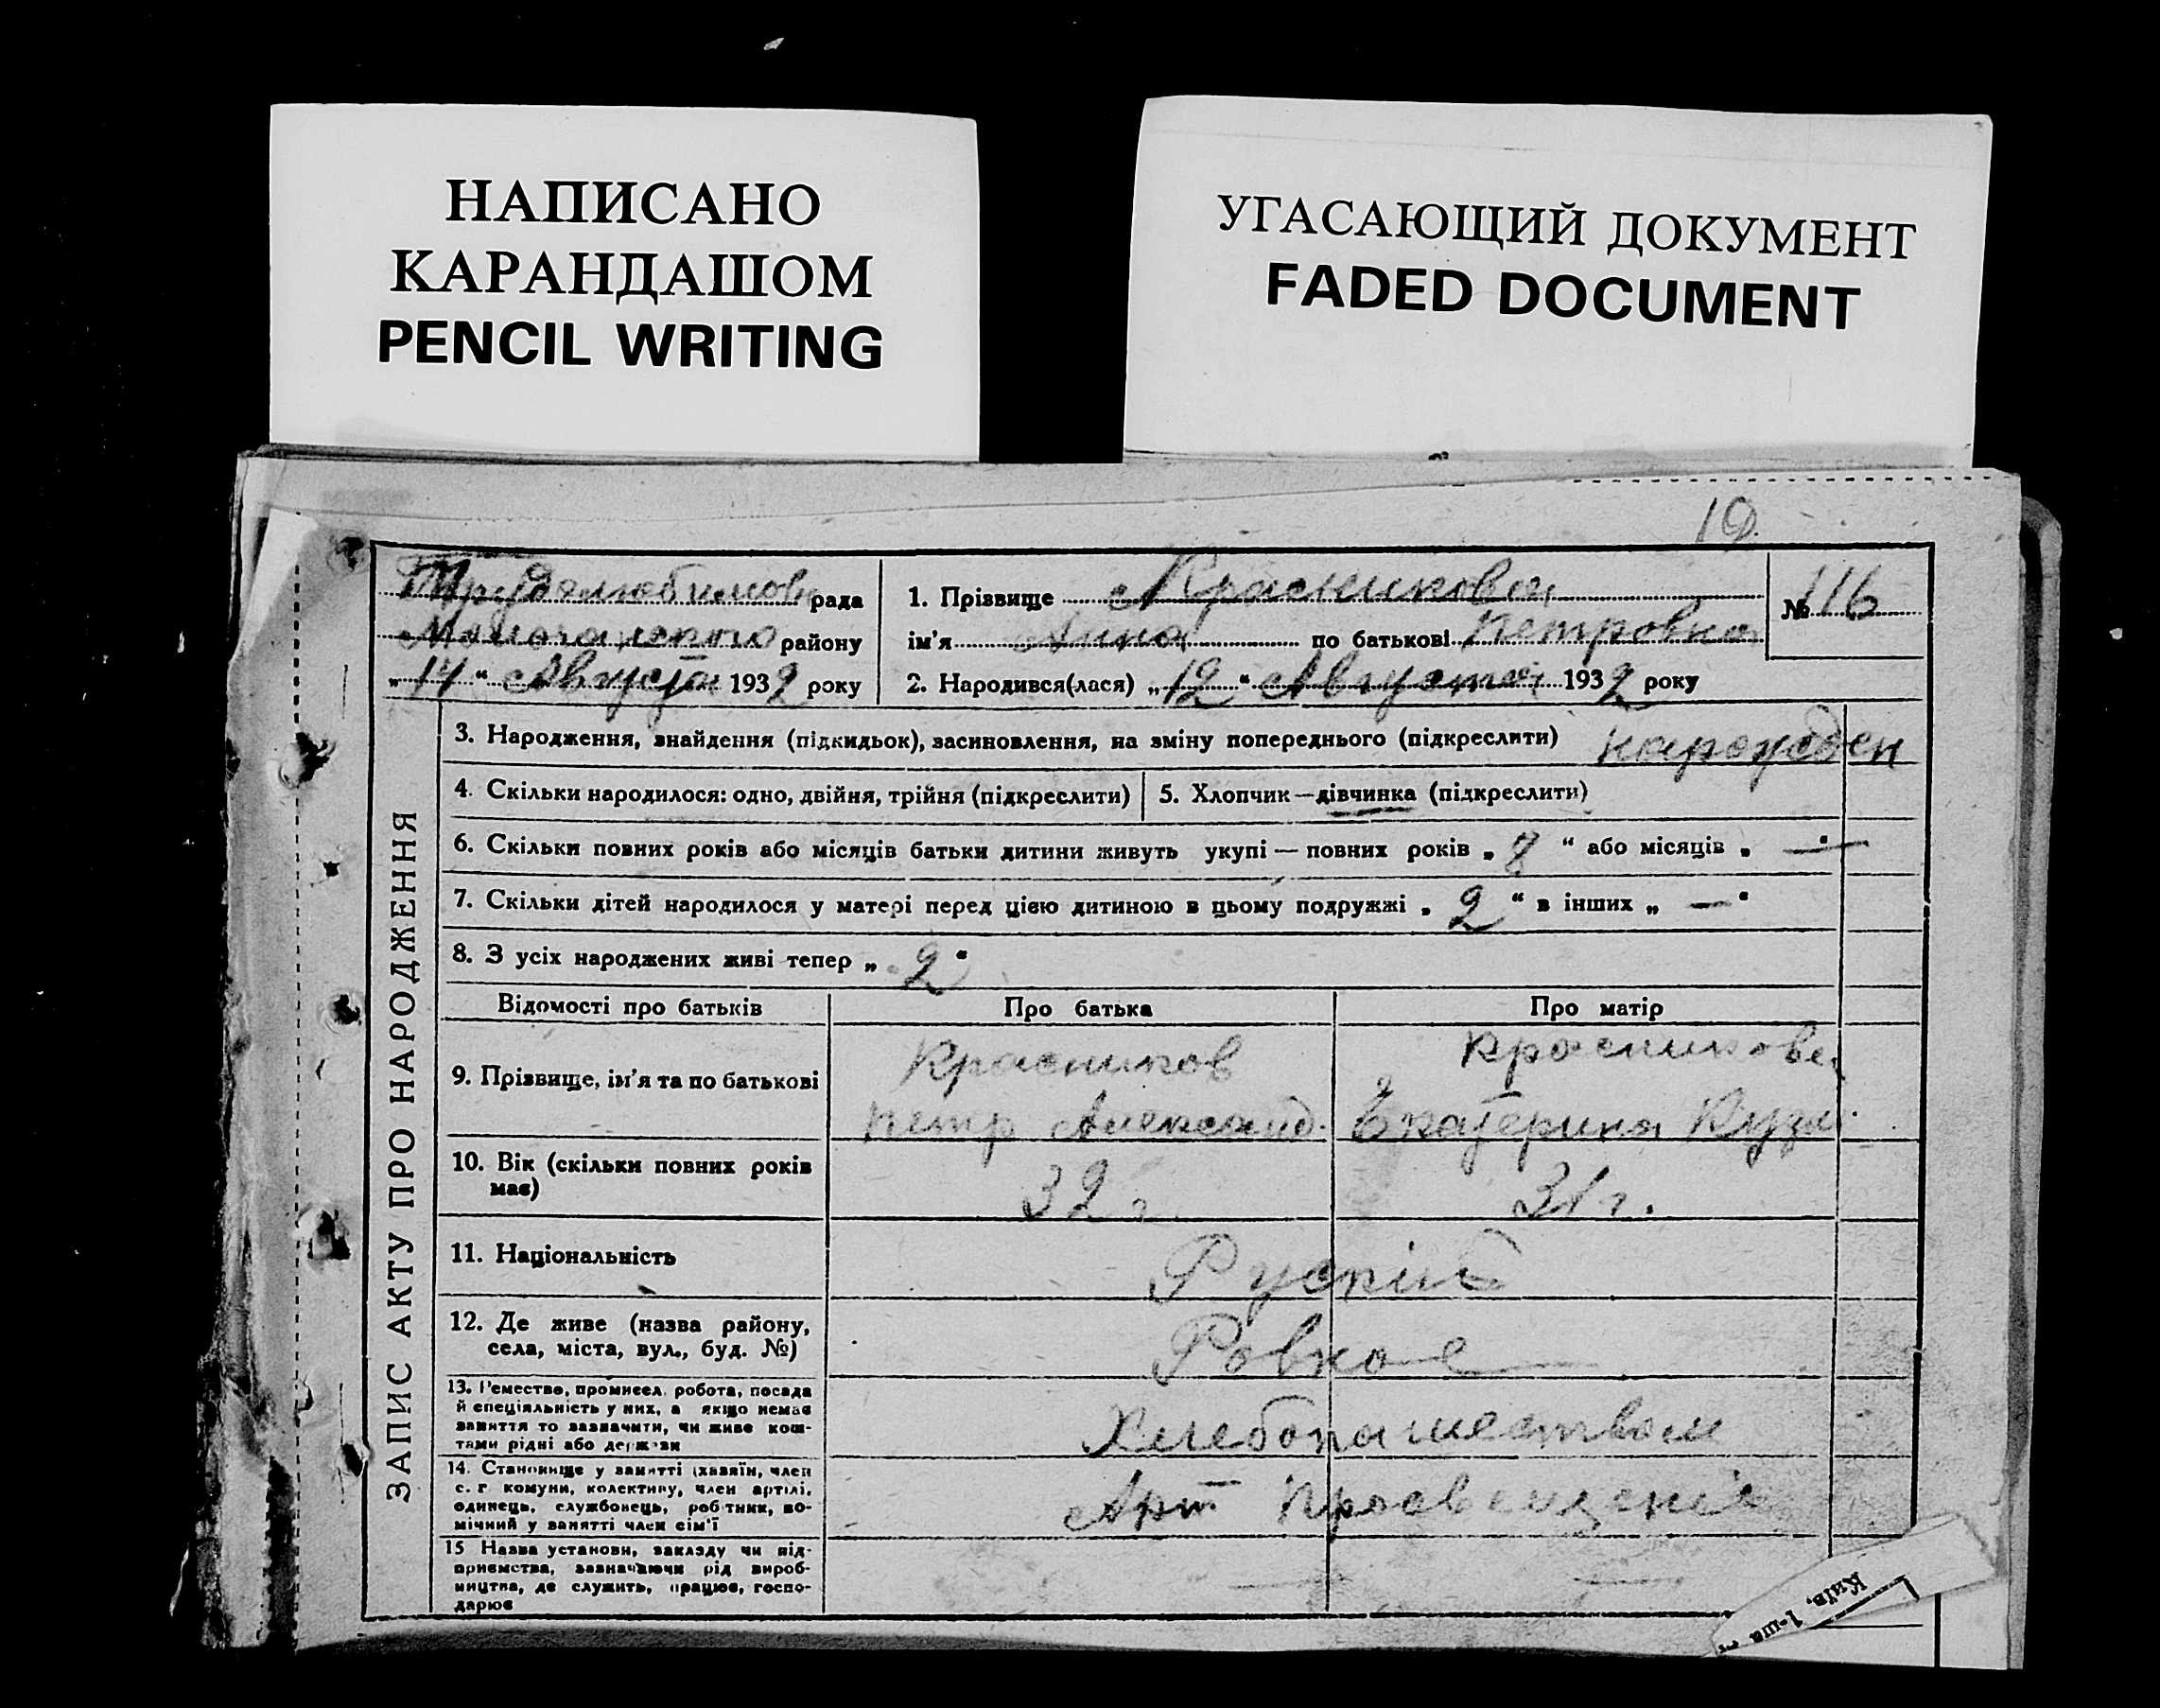 НАПИСАНО
КАРАНДАШОМ
PENCIL WRITING
УГАСАЮЩИЙ ДОКУМЕНТ
FADED DOCUMENT
10.
Трудолюбимовк рада
Молочанского району
„14“ Августа 1932 року
1. Прізвище Красникова
ім’я Анна по батькові Петровна
№ 116
2. Народився(лася) „12“ Августа 1932 року
ЗАПИС АКТУ ПРО НАРОДЖЕННЯ
3. Народження, знайдення (підкидьок), засиновлення, на зміну попереднього (підкреслити) нарожден
4. Скільки народилося: одно, двійня, трійня (підкреслити) 5. Хлопчик—дівчинка (підкреслити)
6. Скільки повних років або місяців батьки дитини живуть укупі — повних років „8“ або місяців „—“
7. Скільки дітей народилося у матері перед цією дитиною в цьому подружжі „2“ в інших „—“
8. З усіх народжених живі тепер „2“
Відомості про батьків Про батька Про матір
9. Прізвище, ім’я та по батькові
Красников
Петр Александ.
Красникова
Екатерина Кузм
10. Вік (скільки повних років
має)
32 г. 31 г.
11. Національність Рускій
12. Де живе (назва району,
села, міста, вул., буд. №)
Ровное
13. Ремество, промисел, робота, посада
й спеціяльність у них, а якщо немає
заняття то зазначити, чи живе кош-
тами рідні або держави
Хлебопашеством
14. Становище у занятті (хазяїн, член
с. г. комуни, колективу, член артілі,
одинець, службовець, робітник, по-
мічний у занятті член сім’ї
Арт Просвещеніе
15 Назва установи, закладу чи під-
приємства, зазначаючи рід вироб-
ництва, де служить, працює, госпо-
дарює
Київ, 1-ша